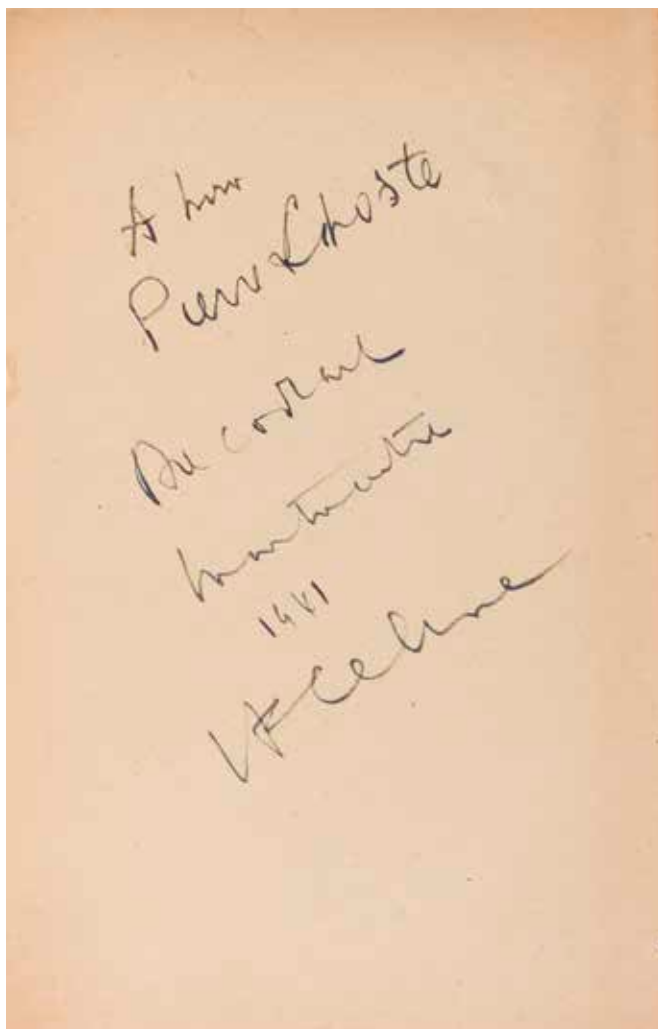 A mon
Pierre Lhoste
Bien cordial
Montmartre
1941
LF Celine